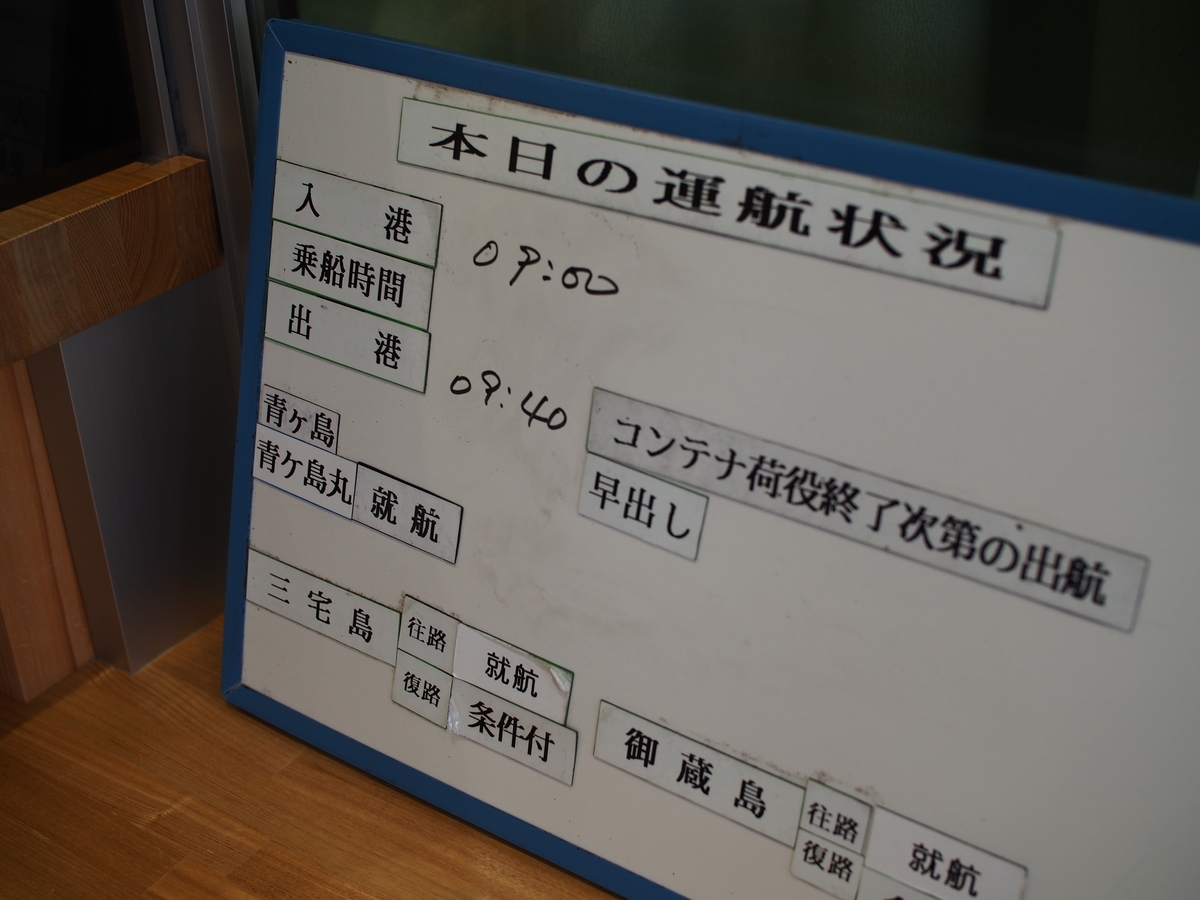 本日の運航状況
入港 09:00
乗船時間
出港 09:40
コンテナ荷役終了次第の出航
早出し
青ヶ島
青ケ島丸 就航
三宅島 往路 就航
復路 条件付
御蔵島 往路 就航
復路